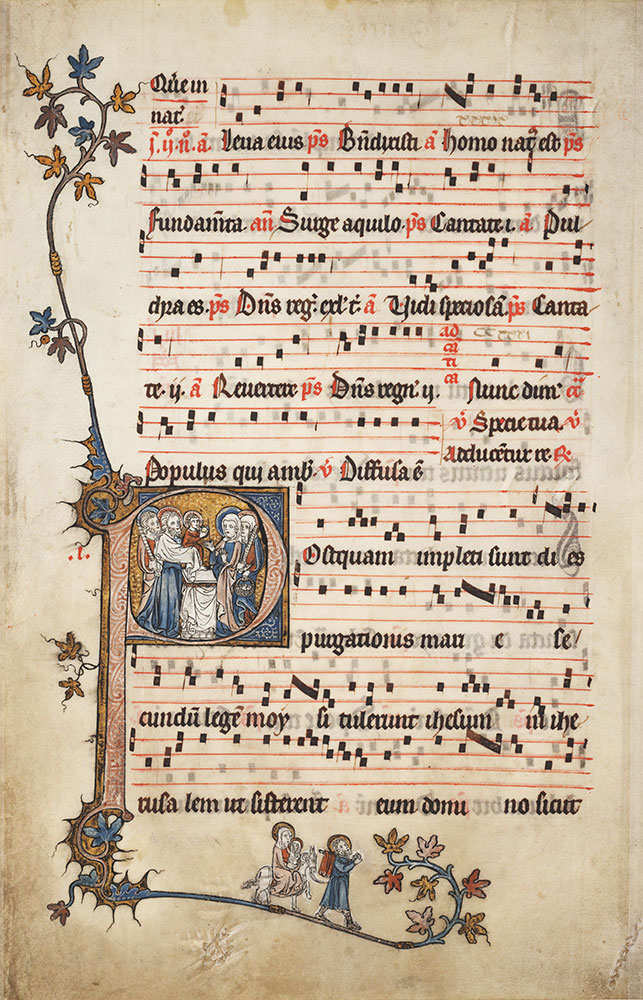 Que in
nat᷒.
Leua eius ps Bn̄dixisti a Homo nat᷒ est ps
fundam̄ta an̄ Surge aquilo. ps Cantate .i. a Pul
chra es. ps Dn̄s reg᷒. exl't. a Vidi speciosā. ps Canta
ad
ca
ti
ca
te .ii. a Reuertere ps Dn̄s regn᷒ .ii. Nunc dim᷒
v̄ Specie tua. v̄
Adducent᷒ re. R
Populus qui amb᷒. v̄ Diffusa ē
.i.
Postquam impleti sunt di es
purgationis mari e se
cundū legē moy si tulerunt ihesum in ihe
rusa lem ut sisterent eum domi no sicut